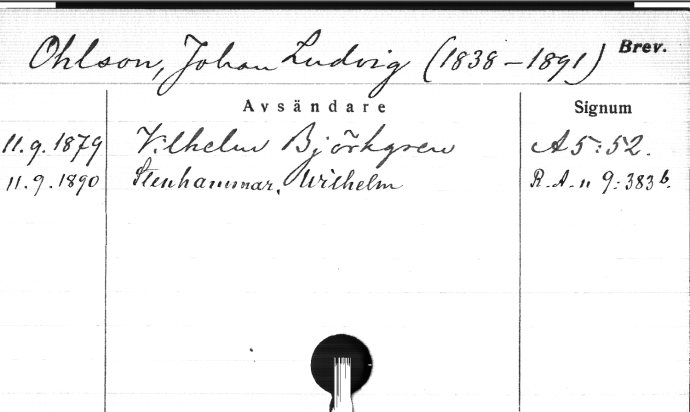 Ohlson, Johan Ludvig (1838–1891) Brev.
Avsändare Signum
11.9.1879 Vilhelm Björkgren A5:52.
11.9.1890 Stenhammar, Wilhelm R.A. 11 9:383 b.